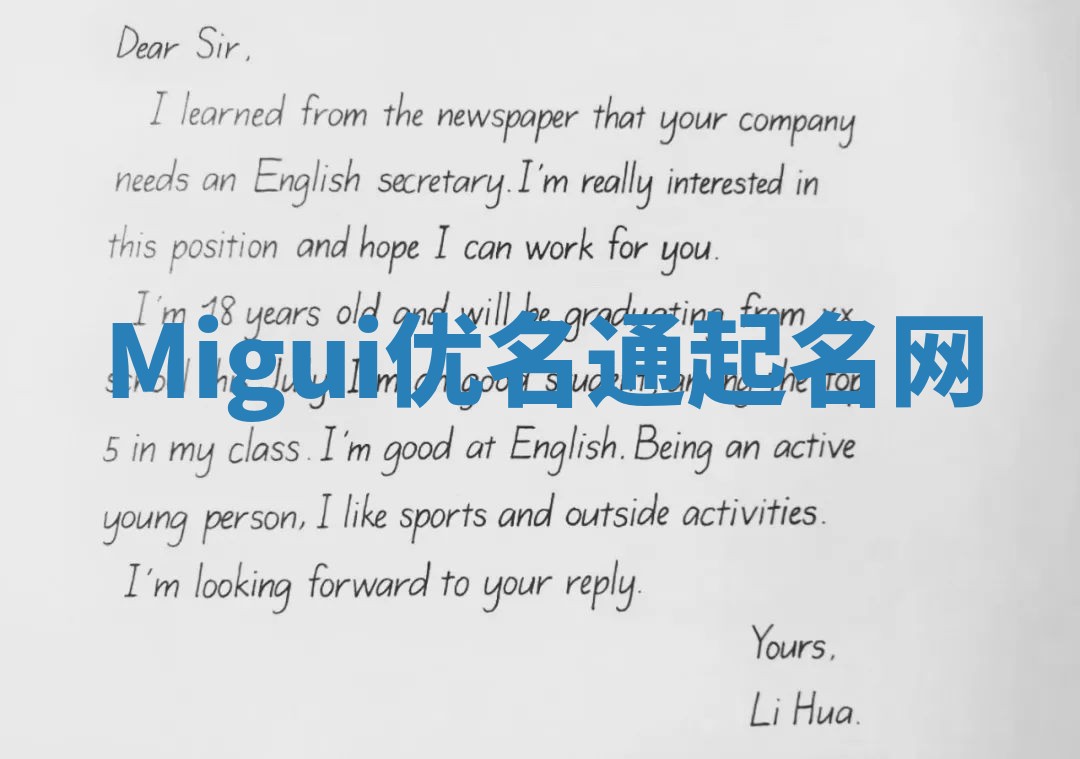 Dear Sir,
I learned from the newspaper that your company
needs an English secretary. I'm really interested in
this position and hope I can work for you.
I'm 18 years old and will be graduating from xx
school this July. I'm a good student, among the top
5 in my class. I'm good at English. Being an active
young person, I like sports and outside activities.
I'm looking forward to your reply.
Yours,
Li Hua.
Migui优名通起名网